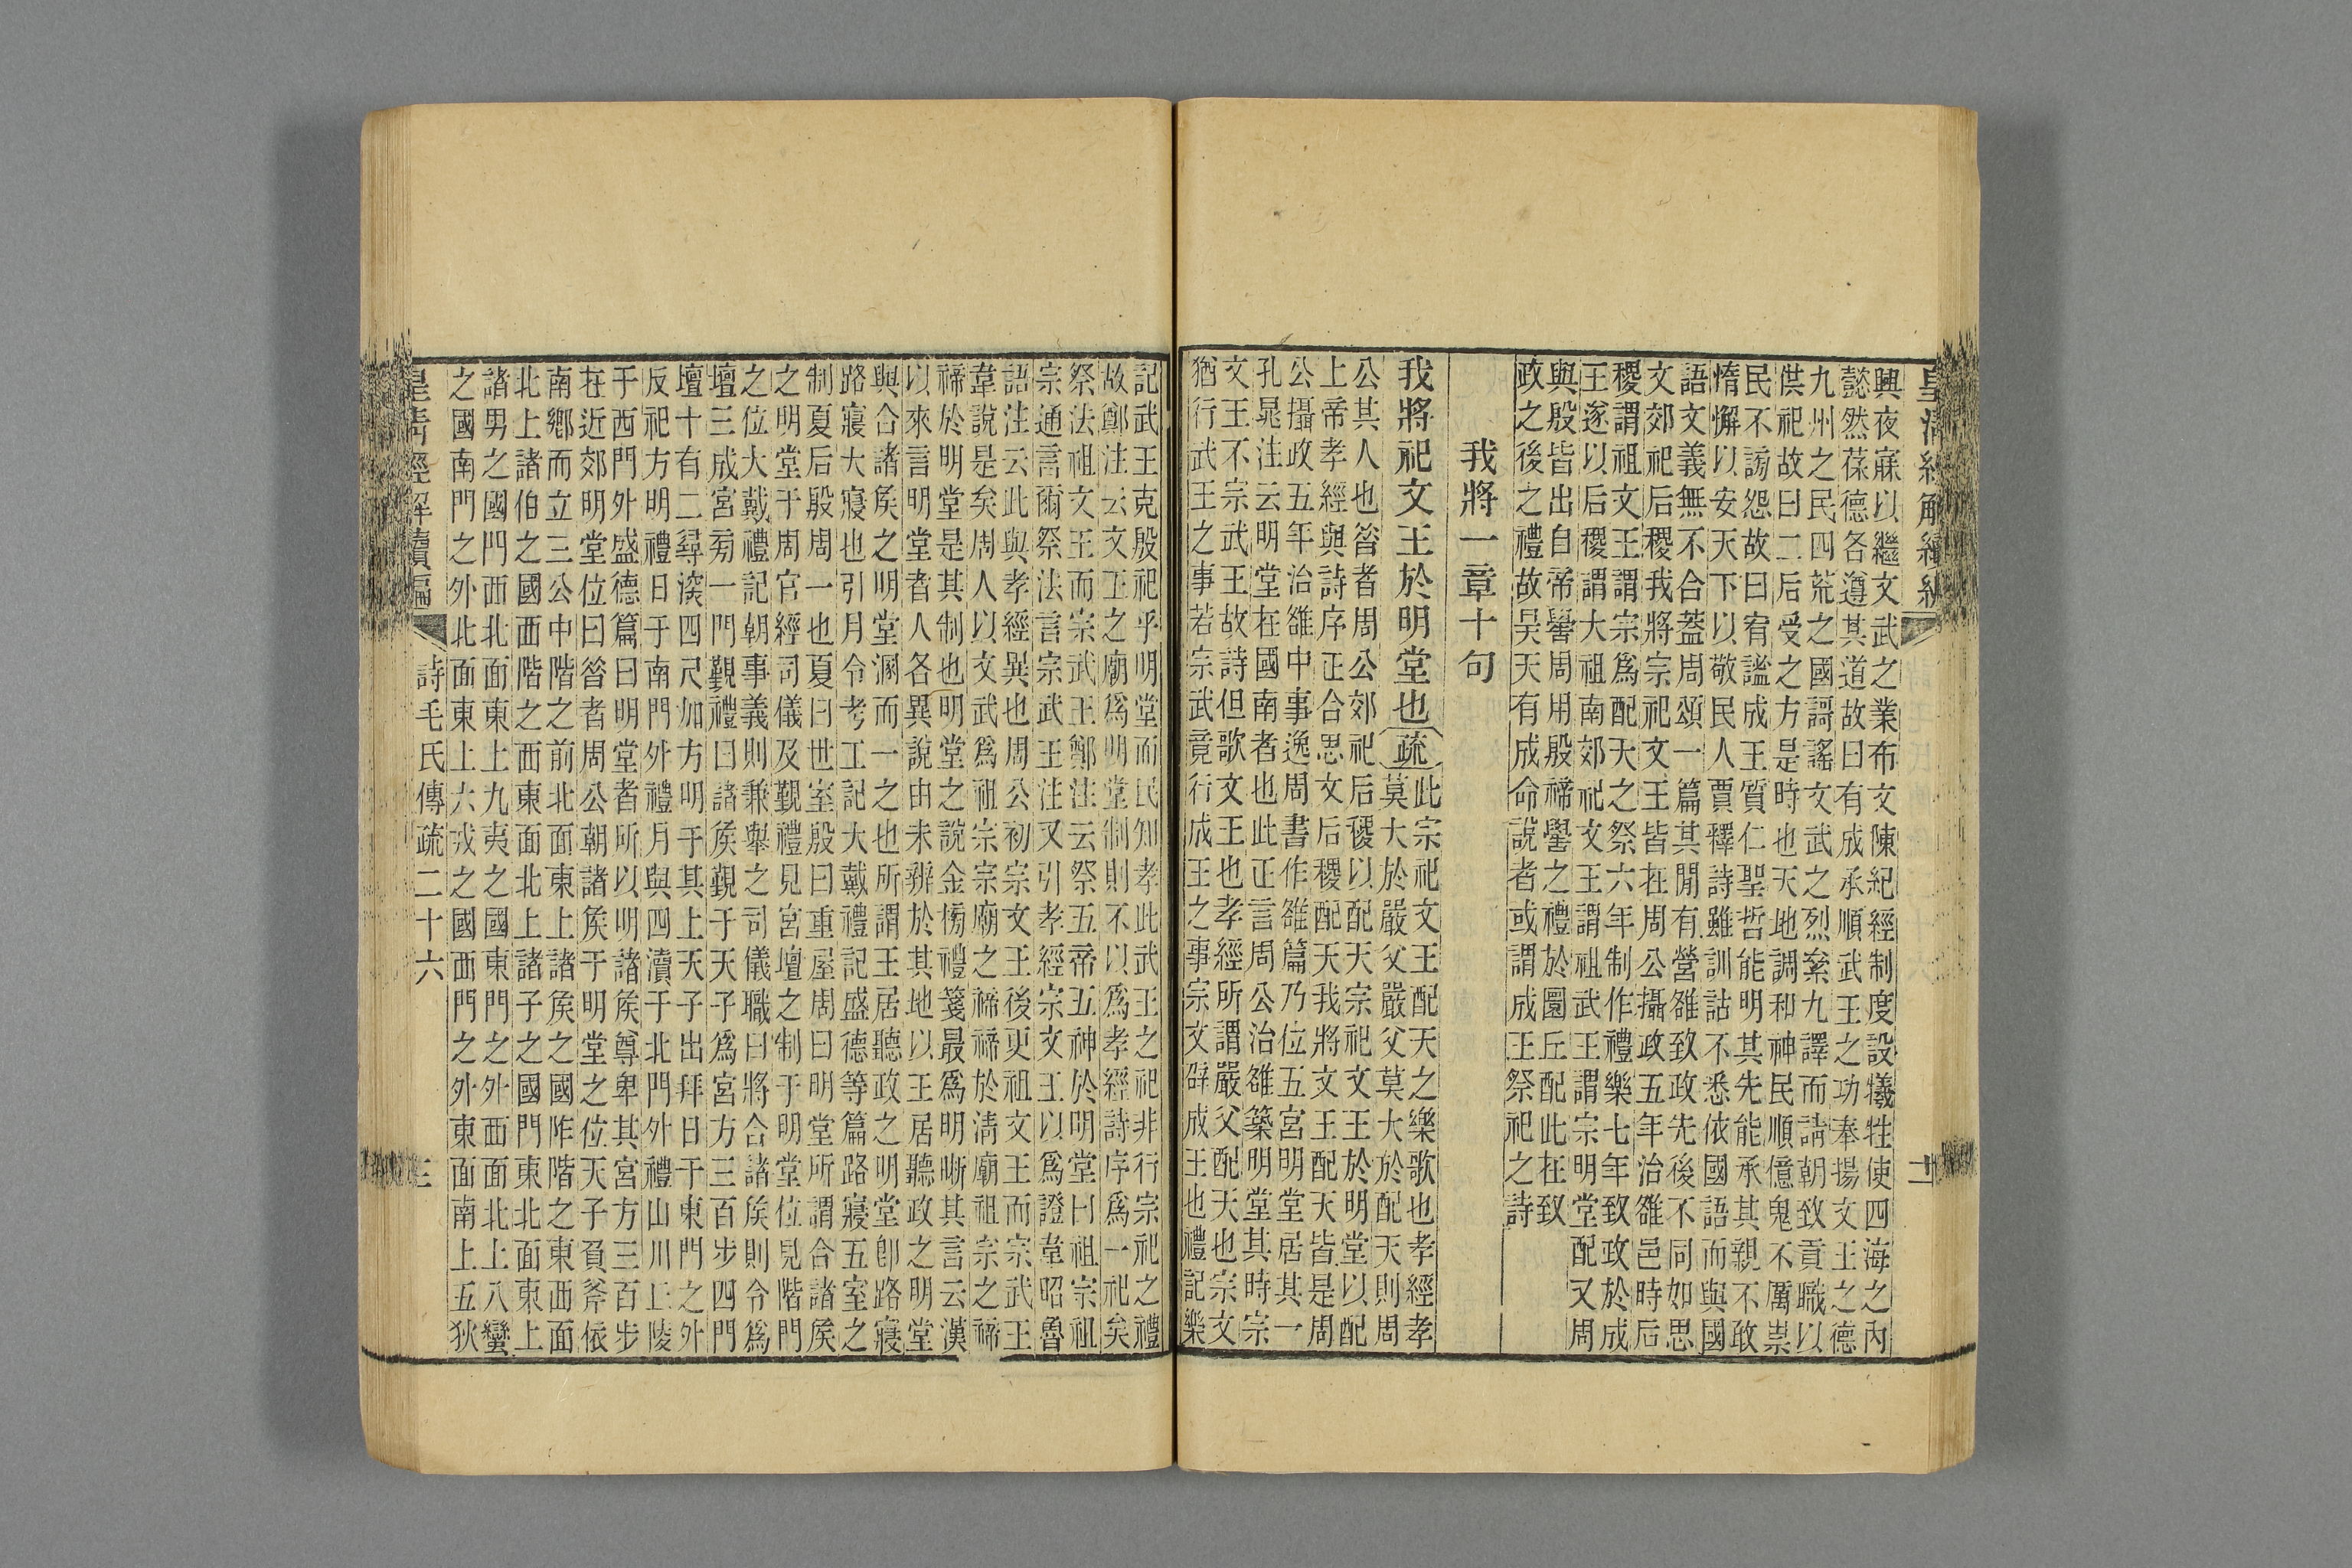 興夜寐以繼文武之業布文陳紀經制度設犧牲使四海之內
懿然葆德各遵其道故曰有成承順武王之功奉揚文王之德
九州之民四荒之國謌謠文武之烈絫九譯而請朝致貢職以
供祀故曰二后受之方是時也天地調和神民順億鬼不厲祟
民不謗怨故曰宥謐成王質仁聖哲能明其先能承其親不敢
惰懈以安天下以敬民人賈釋詩雖訓詁不悉依國語而與國
語文義無不合蓋周頌一篇其閒有營雒致政先後不同如思
文郊祀后稷我將宗祀文王皆在周公攝政五年治雒邑時后
稷謂祖文王謂宗爲配天之祭六年制作禮樂七年致政於成
王遂以后稷謂大祖南郊祀文王謂祖武王謂宗明堂配又周
與殷皆出自帝嚳周用殷禘嚳之禮於圜丘配此在致
政之後之禮故昊天有成命說者或謂成王祭祀之詩
我將一章十句
我將祀文王於明堂也
疏
此宗祀文王配天之樂歌也孝經孝
莫大於嚴父嚴父莫大於配天則周
公其人也昝者周公郊祀后稷以配天宗祀文王於明堂以配
上帝孝經與詩序正合思文后稷配天我將文王配天皆是周
公攝政五年治雒中事逸周書作雒篇乃位五宮明堂居其一
孔晁注云明堂在國南者也此正言周公治雒築明堂其時宗
文王不宗武王故詩但歌文王也孝經所謂嚴父配天也宗文
猶行武王之事若宗武竟行成王之事宗文辟成王也禮記樂
記武王克殷祀乎明堂而民知孝此武王之祀非行宗祀之禮
故鄭注云文王之廟爲明堂制則不以爲孝經詩序爲一祀矣
祭法祖文王而宗武王鄭注云祭五帝五神於明堂曰祖宗祖
宗通言爾祭法言宗武王注又引孝經宗文王以爲證韋昭魯
語注云此與孝經異也周公初宗文王後更祖文王而宗武王
韋說是矣周人以文武爲祖宗宗廟之禘禘於淸廟祖宗之禘
禘於明堂是其制也明堂之說金榜禮箋最爲明晰其言云漢
以來言明堂者人各異說由未辨於其地以王居聽政之明堂
與合諸矦之明堂溷而一之也所謂王居聽政之明堂卽路寢
路寢大寢也引月令考工記大戴禮記盛德等篇路寢五室之
制夏后殷周一也夏曰世室殷曰重屋周曰明堂所謂合諸矦
之明堂于周官經司儀及覲禮見宮壇之制于明堂位見階門
之位大戴禮記朝事義則兼舉之司儀職曰將合諸矦則令爲
壇三成宮旁一門覲禮曰諸矦覲于天子爲宮方三百步四門
壇十有二尋深四尺加方明于其上天子出拜日于東門之外
反祀方明禮日于南門外禮月與四瀆于北門外禮山川丘陵
于西門外盛德篇曰明堂者所以明諸矦尊卑其宮方三百步
在近郊明堂位曰昝者周公朝諸矦于明堂之位天子負斧依
南鄉而立三公中階之前北面東上諸矦之國阼階之東西面
北上諸伯之國西階之西東面北上諸子之國門東北面東上
諸男之國門西北面東上九夷之國東門之外西面北上八蠻
之國南門之外北面東上六戎之國西門之外東面南上五狄
詩毛氏傳疏二十六